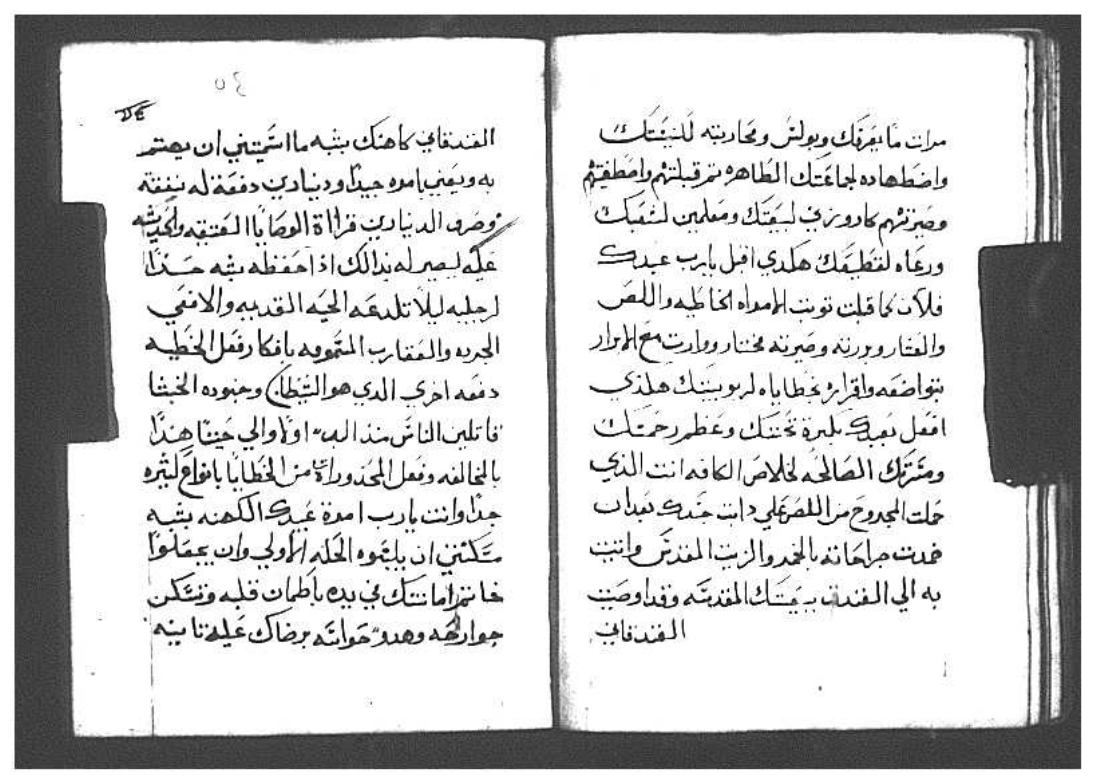 مرات ما يعرفك وبولس ومحاربته لبيعتك
واضطهاده لجماعتك الطاهره ثم قبلتهم واصطفيتهم
وصيرتهم كاروزين لبيعتك ومعلمين لشعبك
ورعاه لقطيعك هكدي اقبل يارب عبدك
فلان كما قبلت توبت الامراه الخاطيه واللص
والعشار وبررته وصيرته مختار ووارت مع الابرار
بتواضعه واقراره بخطاياه لربوبيتك هكذي
افعل بعبدك بكترة تحننك وعظم رحمتك
ومسرتك الصالحه لخلاص الكافه انت الذي
حملت المجروح من اللصوص علي دابت جسدك بعد ان
ضمدت جراحاته بالخمر والزيت المقدس واتيت
به الي الفندق بيعتك المقدسه وقد اوصيت
الفندقاني
٤٥
الفندقاني كاهنك بشبه ما استميتني ان يهتم
به ويعني بامره جيدًا ودينارين دفعة له نفقته
وصرف الدينارين قرااة الوصايا العتيقه والحديثه
عليه ليصير له بدالك اذا حفظه بشبه حدًا
لرجليه ليلا تلدعه الحيه القديمه والافعي
الجربه والعقارب المسمومه بافكار فعل الخطيه
دفعه اخري الدي هو الشيطان وجنوده الخبثا
قاتلين الناس مند البدء اولا والي حيننا هدا
بالمخالفه وفعل المحدوراة من الخطايا بانواع كثيره
جدًا وانت يارب امرة عبيدك الكهنه بشبه
مسكنتي ان يلبسوه الحله الاولي وان يجعلوا
خاتم امانتك في يده باطمان قلبه وتسكن
جوارحه وهدو حواسه برضاك عليه تانيه